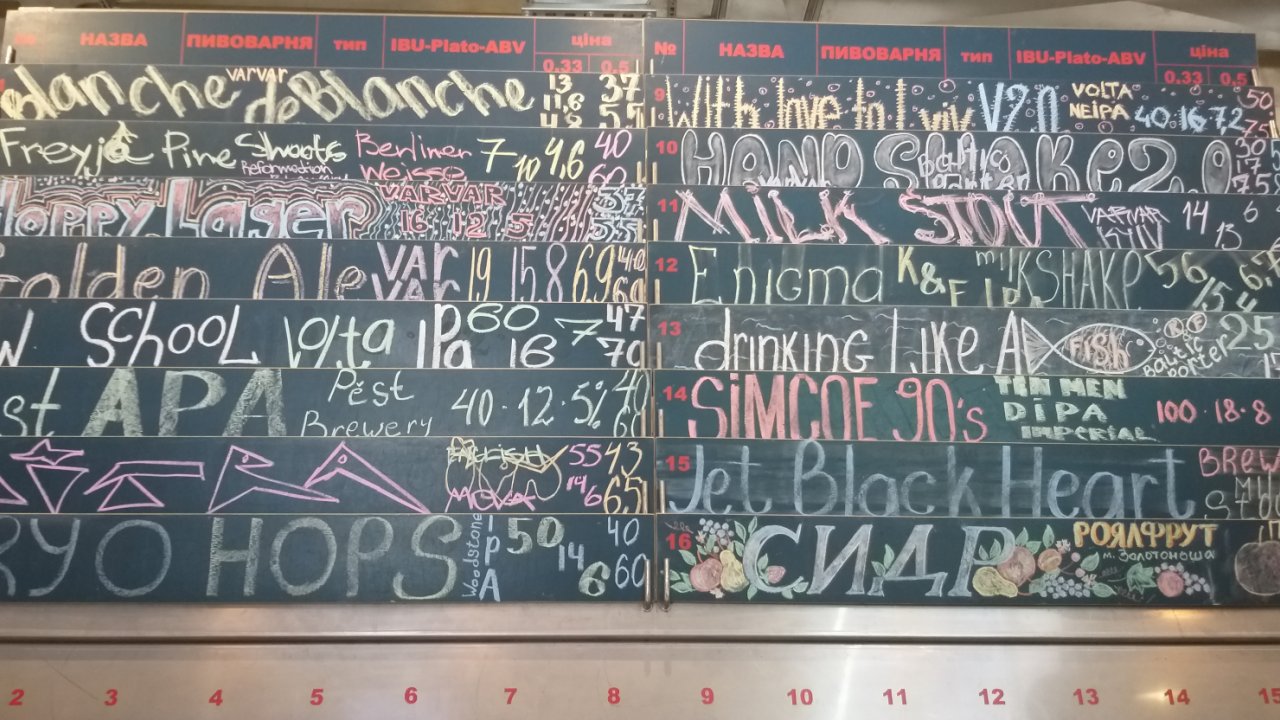 НАЗВА ПИВОВАРНЯ тип IBU-Plato-ABV ціна
0,33 0,5
Blanche de Blanche VARVAR 13 11,6 37
Freyja Pine Shoots Reformation Berliner Weisse 7 10 4,6 40 60
Hoppy Lager VARVAR 16 12 5 37 55
Golden Ale VAR VAR 19 15.8 6.9
School Volta IPa 60 16 7 47 70
APA Pěst Brewery 40·12·5% 40 60
55 14 6 43 65
RYO HOPS Woodstone IPA 50 14 6 40 60
№ НАЗВА ПИВОВАРНЯ тип IBU-Plato-ABV ціна
0,33 0,5
9 With love to Lviv V2.0 VOLTA NEIPA 40·16·7,2 50 75
10 HAND SHAKE 2.0 Baltic porter 30 17 7.5
11 MiLK STOUT VARVAR KYIV 14 13 6
12 Enigma K&F milKSHAKE IPA 56 15,4 6,7
13 drinking like A FiSh K&F Baltic porter 25
14 SiMCOE 90's TEN MEN DIPA IMPERIAL 100·18·8
15 Jet Black Heart BREW
16 СИДР РОЯЛФРУТ м. Золотоноша
2 3 4 5 6 7 8 9 10 11 12 13 14 15